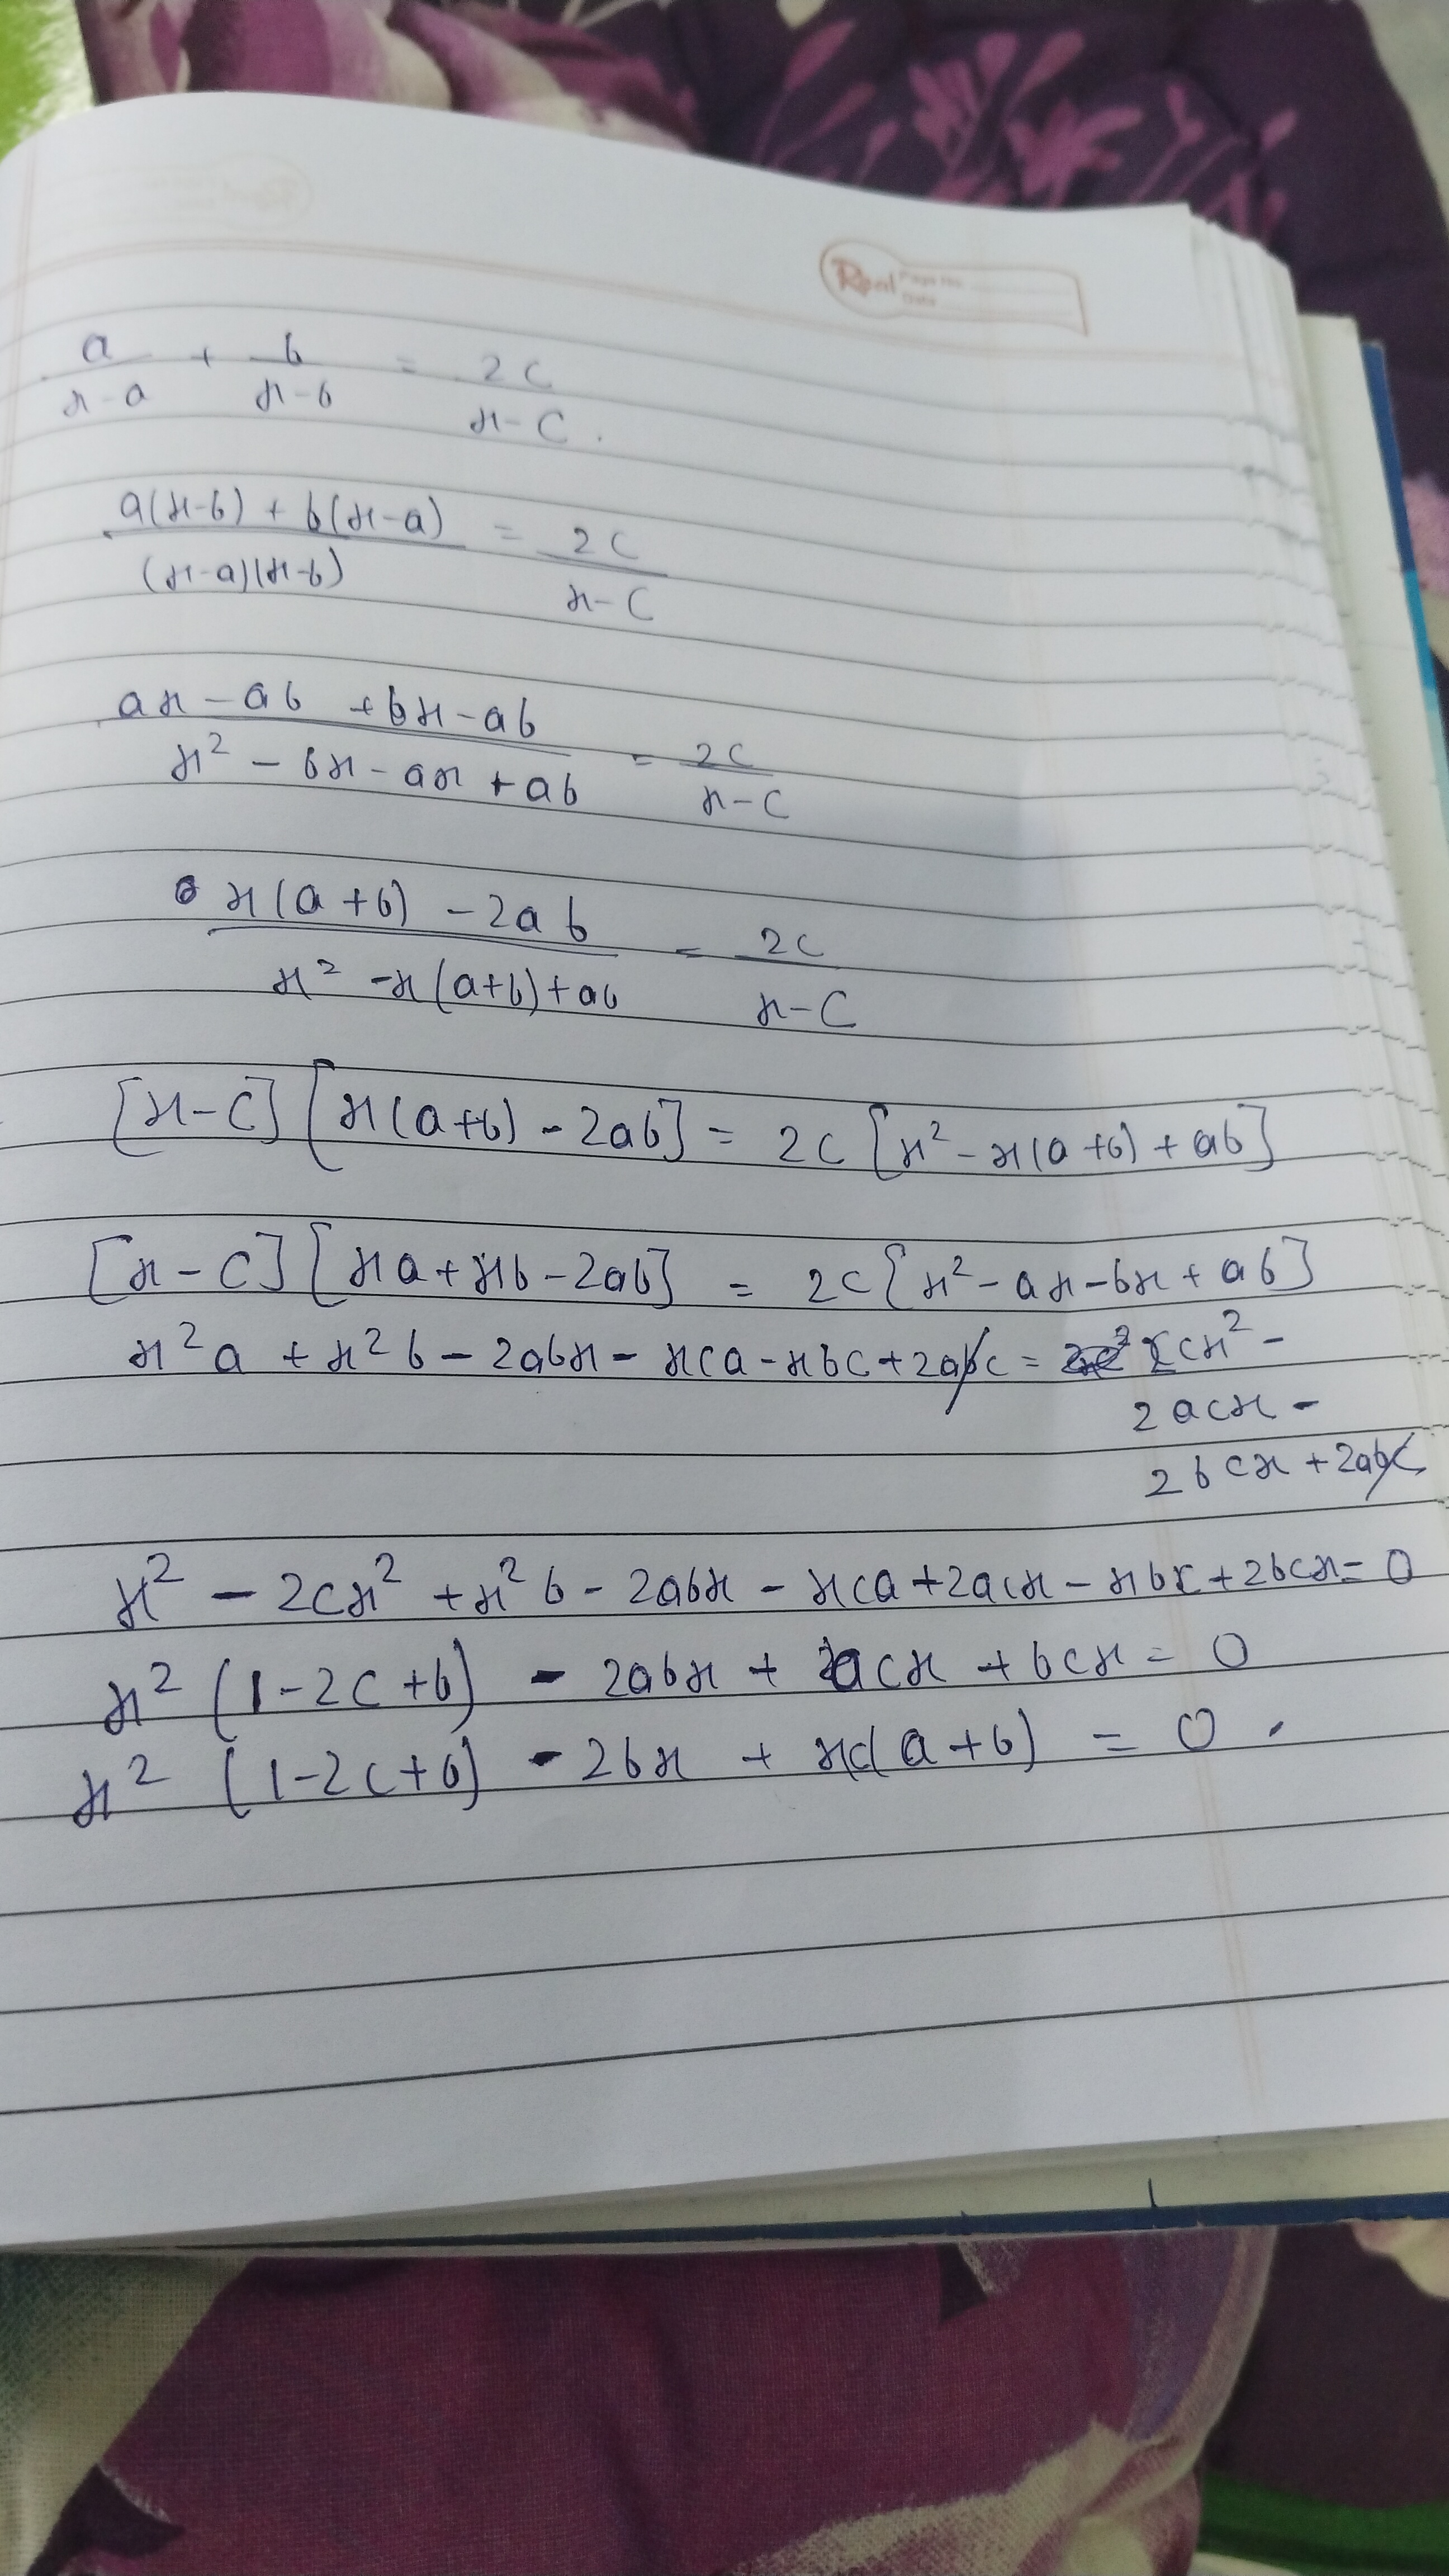 Real Page No. Date
a/(x-a) + b/(x-b) = 2c/(x-c).
(a(x-b) + b(x-a))/((x-a)(x-b)) = 2c/(x-c)
(ax - ab + bx - ab)/(x² - bx - ax + ab) = 2c/(x-c)
(x(a+b) - 2ab)/(x² - x(a+b) + ab) = 2c/(x-c)
[x-c] [x(a+b) - 2ab] = 2c [x² - x(a+b) + ab]
[x-c] [xa + xb - 2ab] = 2c [x² - ax - bx + ab]
x²a + x²b - 2abx - xca - xbc + 2abc = 2cx² -
2acx -
2bcx + 2abc
x² - 2cx² + x²b - 2abx - xca + 2acx - xbc + 2bcx = 0
x² (1-2c+b) - 2abx + acx + bcx = 0
x² (1-2c+b) - 2bx + xc(a+b) = 0.